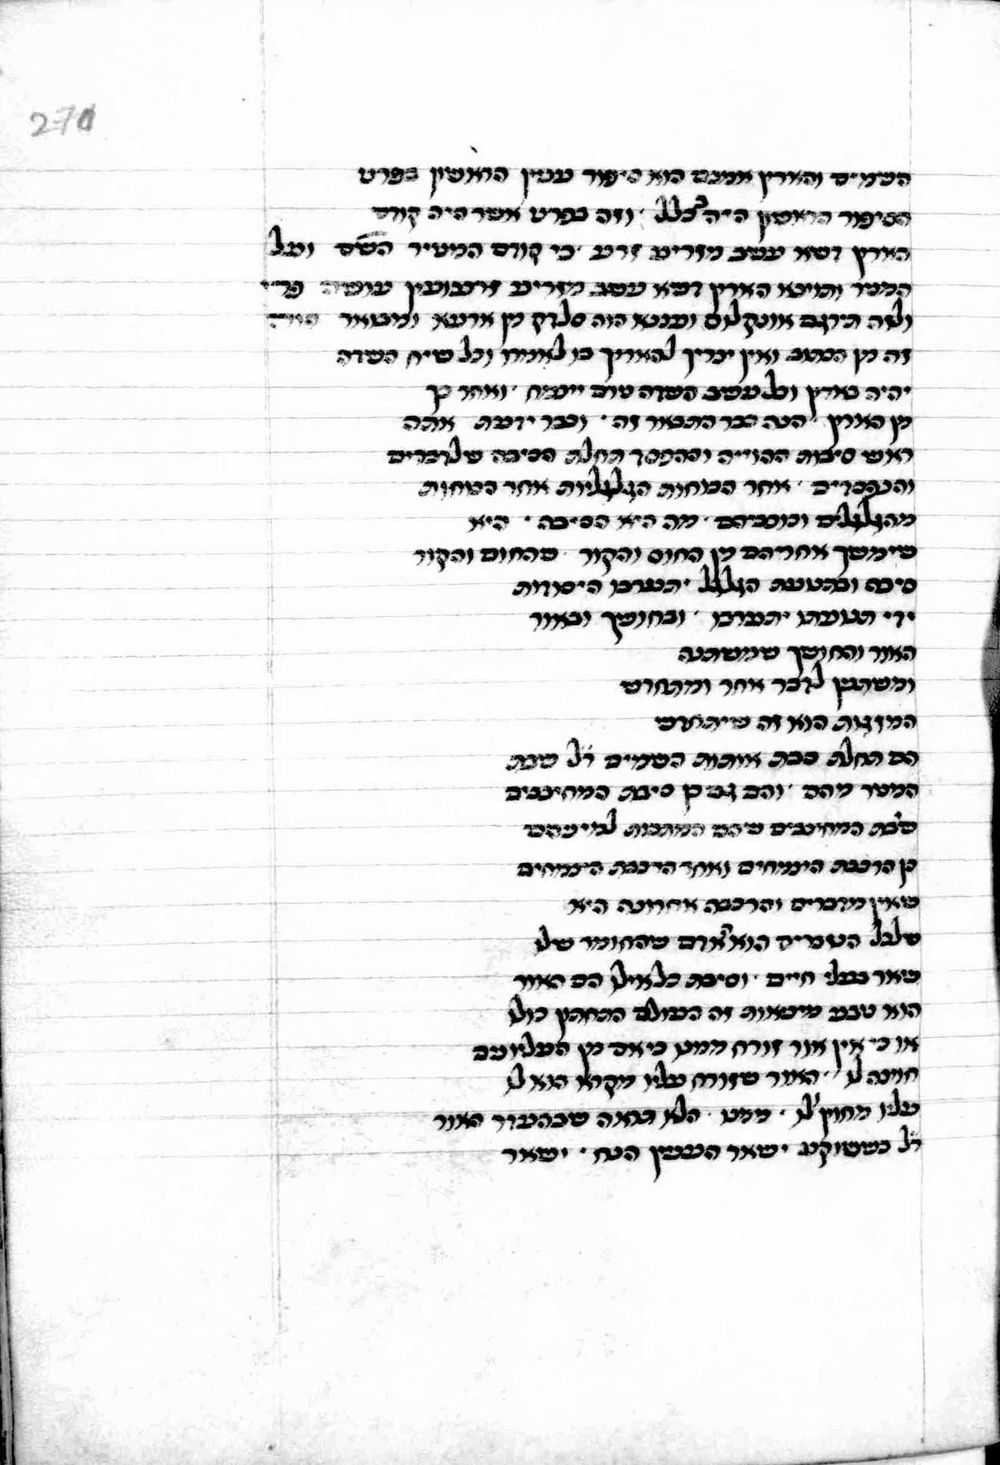 270
השמים והארץ אמנם הוא סיפור ענין הראשון בפרט
הסיפור הראשון היה בכלל וזה בפרט אשר היה קודם
הארץ דשא עשב מזריע זרע כי קודם המטיר השם ועל
המטר ותוצא הארץ דשא עשב מזריע זרע ועץ עושה פרי
ולזה תירגם אונקלוס ועננא הוה סליק מן ארעא ומשאר
זה מן הכתוב ואין צריך להאריך בו לאמרו וכל שיח השדה
יהיה בארץ וכל עשב השדה טרם יצמח ואחר כך
מן הארץ הנה כבר התבאר זה וכבר ידעת אתה
ראש סיבות ההוייה וההפסד תחלת הסיבה של דברים
והנפסדים אחר הכוחות הגלגליות אחר הכוחות
מהגלגלים וכוכביהם מה היא הסיבה היא
שימשך אחריהם מן החום והקור שהחום והקור
סיבה ובתנועת הגלגל יתערבו היסודות
ידי תנועתו יתערבו ובחושך ובאור
האור והחושך שמשתנה
ומשתנין לדבר אחר ומתחדש
המזגות הוא זה שיתחדש
הם תחלת סבת אותות השמים ר״ל סבת
המטר מהם והם גם כן סיבת המחצבים
סבת המחצבים שהם המתכות למיניהם
כן הרכבת הצמחים ואחר הרכבת הצמחים
שאין מדברים והרכבה אחרונה היא
שלכל השמים הוא אדם שהחומר שלו
שאר בעלי חיים וסיבת כל אילו הם האור
הוא טבע מציאות זה העולם התחתון כולו
או כי אין אור זורח ממנו כי אם מן העליונים
חוצה לו האור שזורח עליו מקרה הוא לו
עליו מחוץ לו ממנו הלא תראה שבהעדר האור
ר״ל כששוקע ישאר העשן הנח ישאר